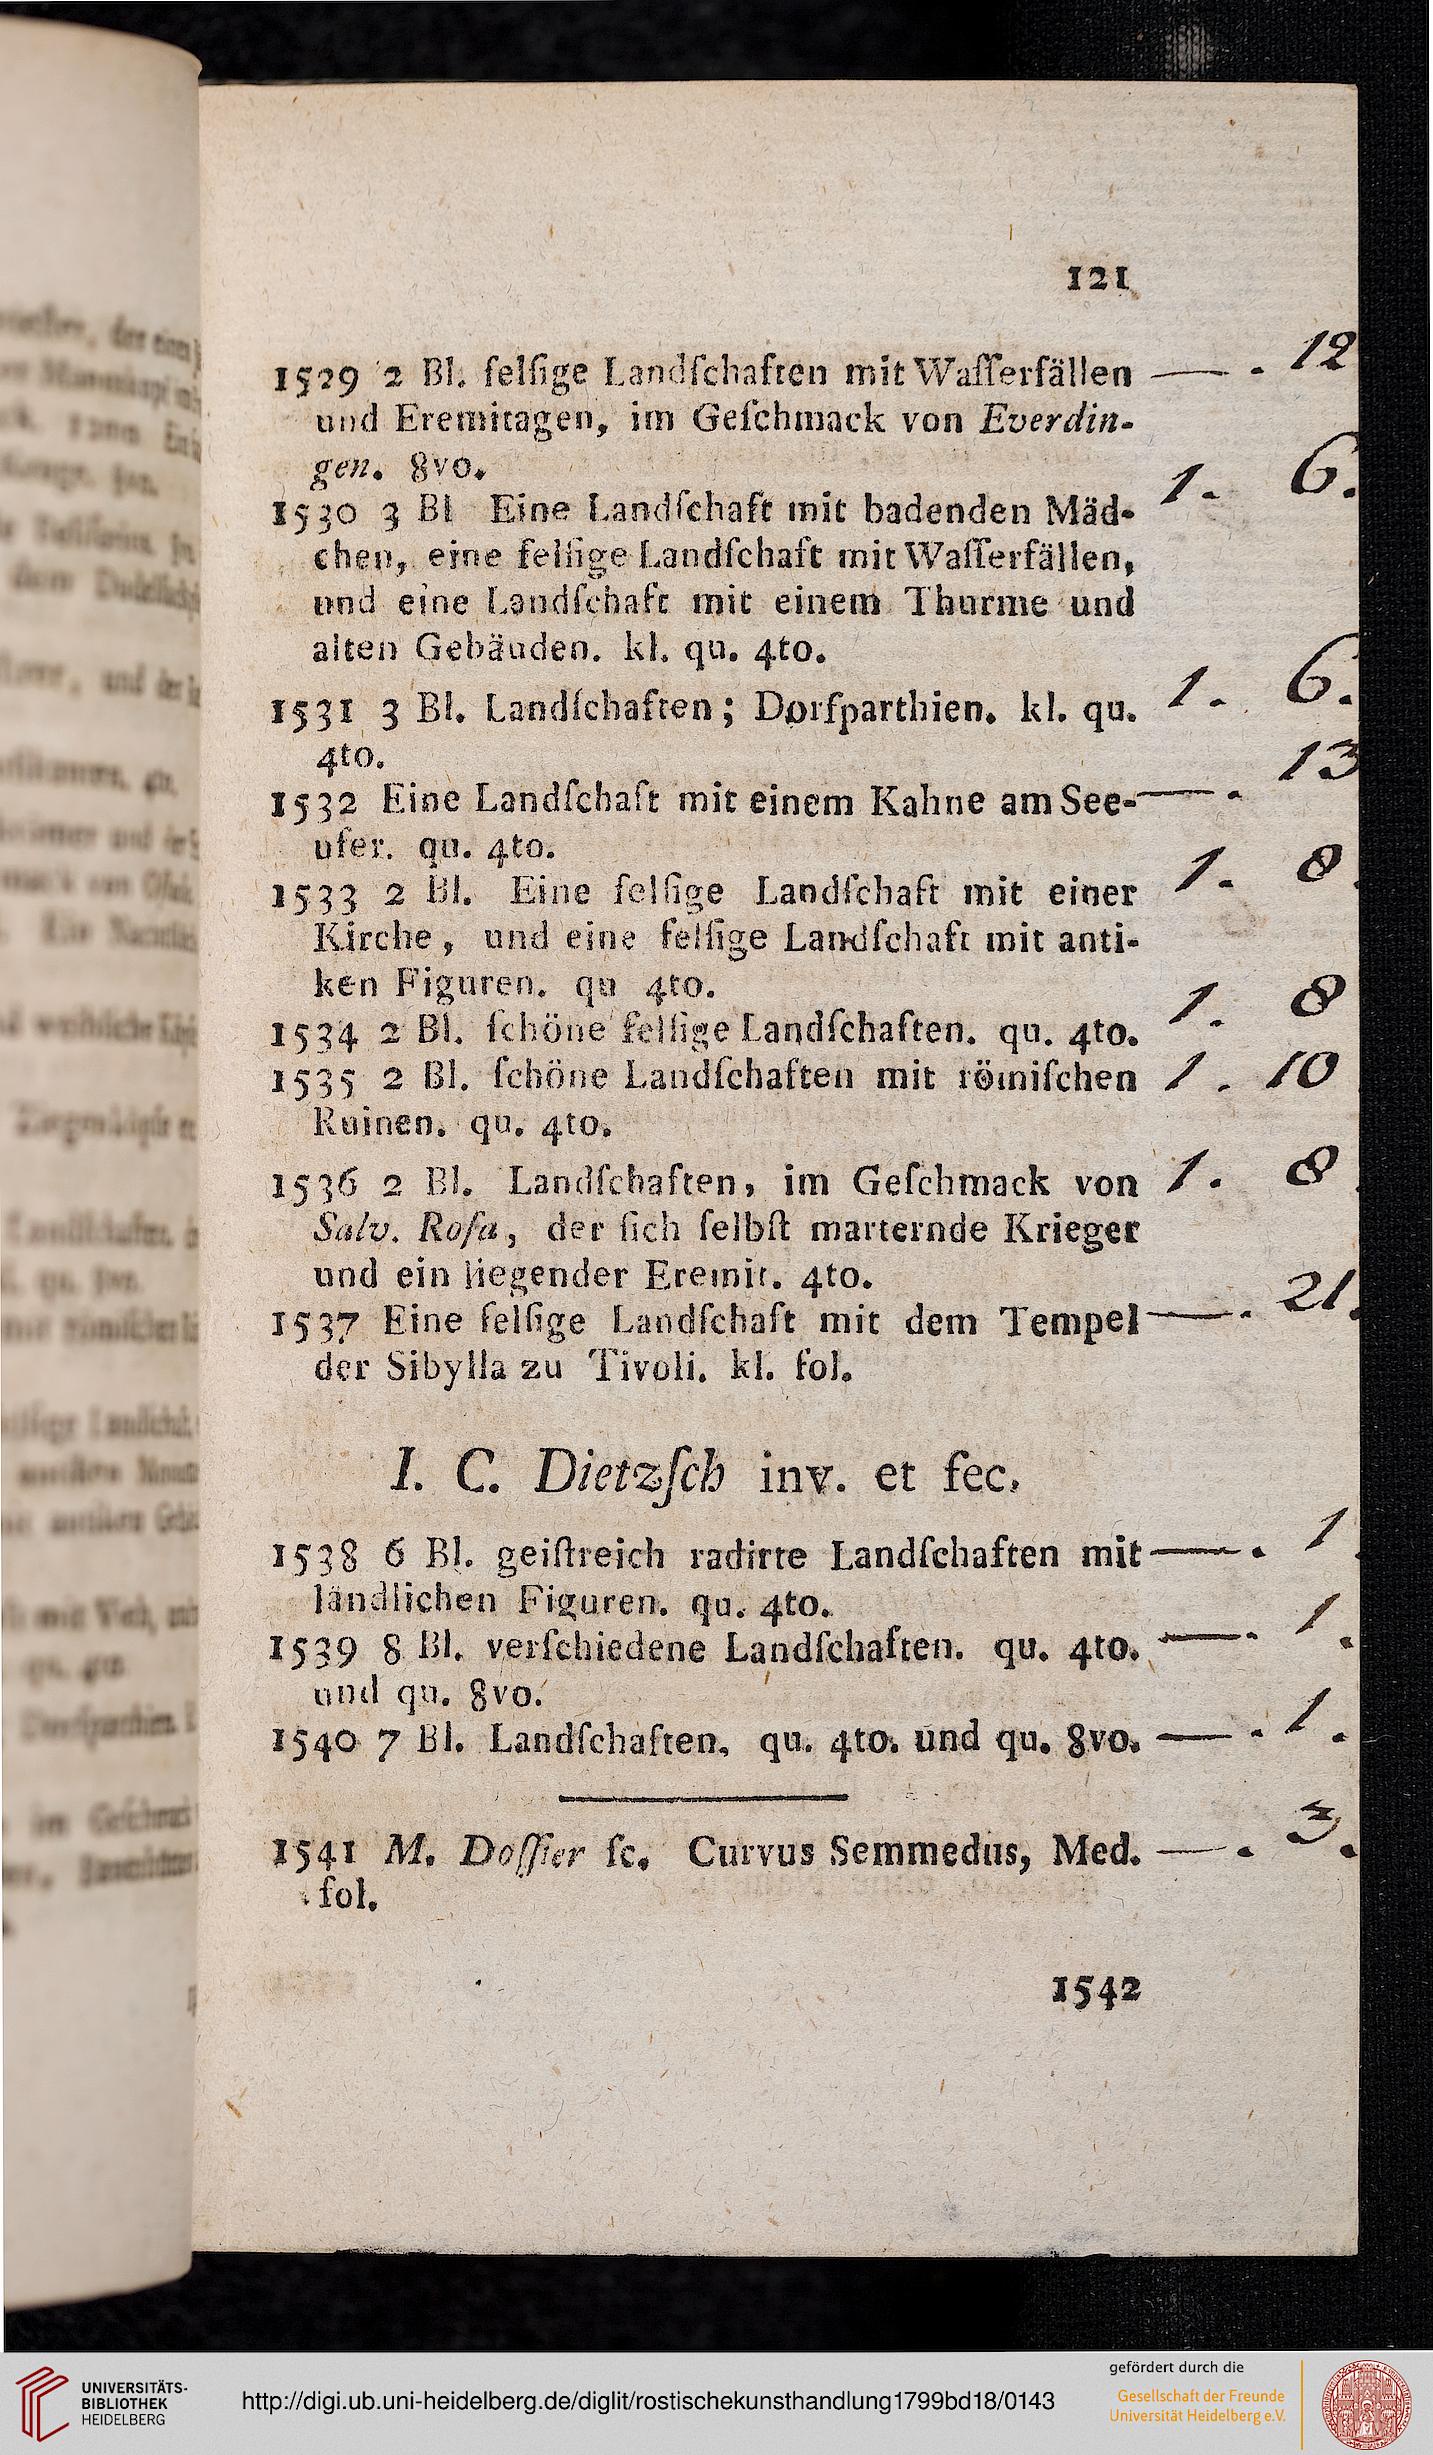 121
1529 2 Bl. felſige Landſchaften mit Waſſerfällen — . 12
und Eremitagen, im Geſchmack von Everdin-
gen. 8vo.
1530 3 Bl Eine Landſchaft mit badenden Mäd- 1. 6.
chen, eine felſige Landſchaft mit Waſſerfällen,
und eine Landſchaft mit einem Thurme und
alten Gebäuden. kl. qu. 4to.
1531 3 Bl. Landſchaften; Dorfparthien. kl. qu. 1. 6.
4to.
1532 Eine Landſchaft mit einem Kahne am See- — . 13
ufer. qu. 4to.
1533 2 Bl. Eine felſige Landſchaft mit einer 1. 8.
Kirche, und eine felſige Landſchaft mit anti-
ken Figuren. qu 4to.
1534 2 Bl. ſchöne felſige Landſchaften. qu. 4to. 1. 8
1535 2 Bl. ſchöne Landſchaften mit römiſchen 1. 10
Ruinen. qu. 4to.
1536 2 Bl. Landſchaften, im Geſchmack von 1. 8.
Salv. Roſa, der ſich ſelbſt marternde Krieger
und ein liegender Eremit. 4to.
1537 Eine felſige Landſchaft mit dem Tempel — . 21.
der Sibylla zu Tivoli. kl. fol.
I. C. Dietzſch inv. et fec.
1538 6 Bl. geiſtreich radirte Landſchaften mit — . 1.
ländlichen Figuren. qu. 4to.
1539 8 Bl. verſchiedene Landſchaften. qu. 4to. — . 1.
und qu. 8vo.
1540 7 Bl. Landſchaften, qu. 4to. und qu. 8vo. — . 1.
1541 M. Doſſier ſc. Curvus Semmedus, Med. — . 3.
fol.
1542
UNIVERSITÄTS-
BIBLIOTHEK
HEIDELBERG
http://digi.ub.uni-heidelberg.de/diglit/rostischekunsthandlung1799bd18/0143
gefördert durch die
Gesellschaft der Freunde
Universität Heidelberg e.V.